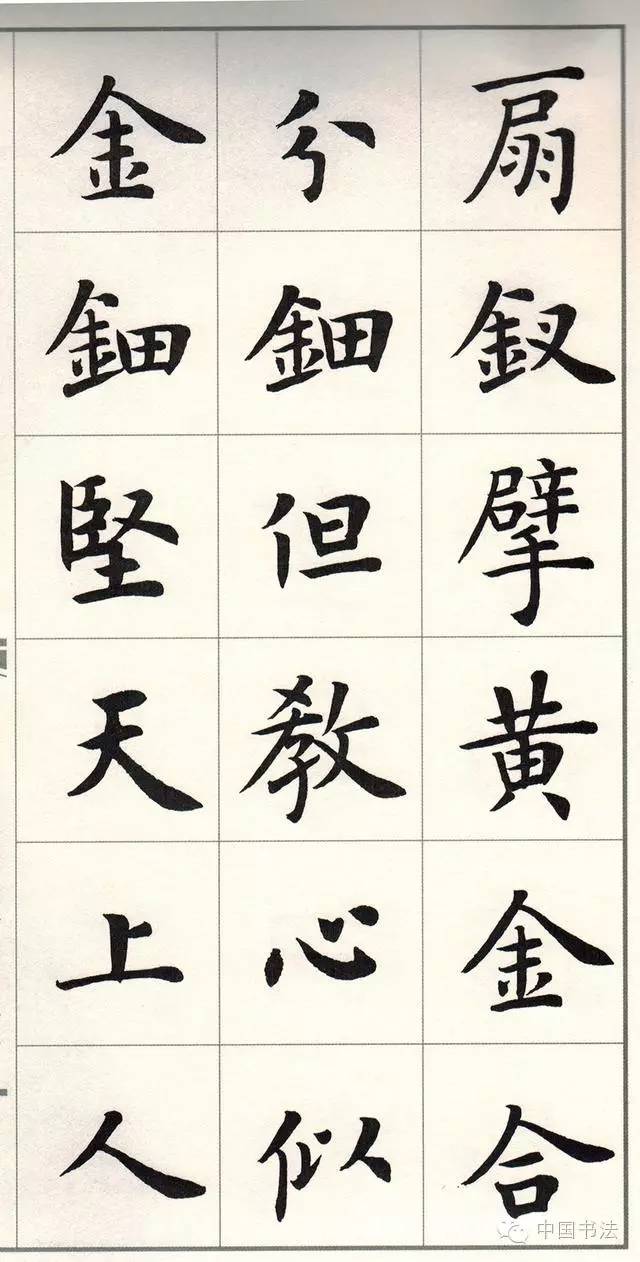 扇釵擘黄金合
分鈿但教心似
金鈿堅天上人
中国书法